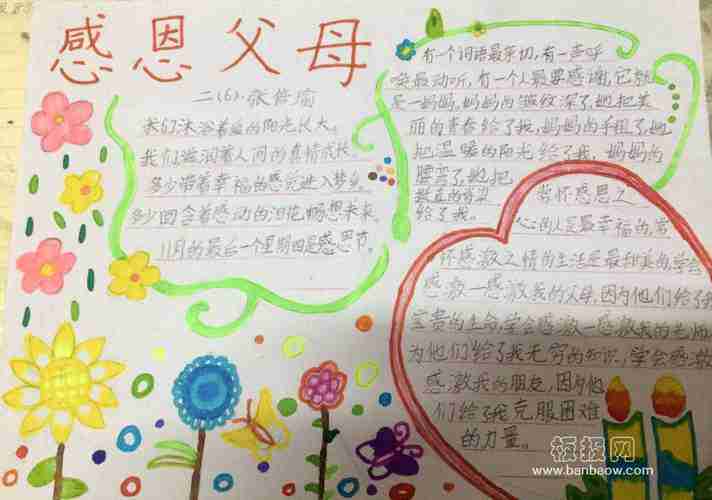 感恩父母
二(6).张倍瑜
我们沐浴着爱的阳光长大。
我们滋润着人间的真情成长。
多少带着幸福的感觉进入梦乡。
多少回含着感动的泪花畅想未来。
11月的最后一个星期四是感恩节。
有一个词语最亲切,有一声呼
唤最动听,有一个人最要感谢,它就
是—妈妈,妈妈的皱纹深了她把美
丽的青春给了我,妈妈的手粗了她
把温暖的阳光给了我,妈妈的
腰弯了她把
挺直的脊梁
给了我。
常怀感恩之
心的人是最幸福的,常
怀感激之情的生活是最和美的,学会
感激—感激我的父母,因为他们给了我
宝贵的生命,学会感激—感激我的老师
为他们给了我无穷的知识,学会感激
感激我的朋友,因为他
们给了我克服困难
的力量。
板报网
www.banbeow.com